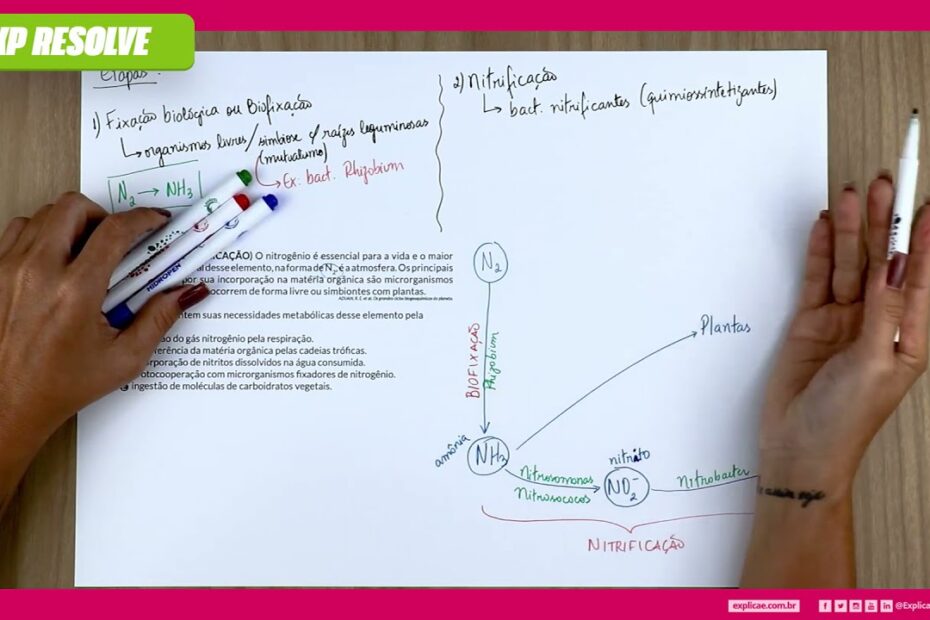 XP RESOLVE
Etapas:
1) Fixação biológica ou Biofixação
↳ organismos livres/simbiose c/ raízes leguminosas
(mutualismo)
↳ Ex. bact. Rhizobium
N2 → NH3
2) Nitrificação
↳ bact. nitrificantes (quimiossintetizantes)
CAÇÃO) O nitrogênio é essencial para a vida e o maior
desse elemento, na forma de N2, é a atmosfera. Os principais
por sua incorporação na matéria orgânica são microrganismos
ocorrem de forma livre ou simbiontes com plantas.
suas necessidades metabólicas desse elemento pela
do gás nitrogênio pela respiração.
da matéria orgânica pelas cadeias tróficas.
de nitritos dissolvidos na água consumida.
com microrganismos fixadores de nitrogênio.
ingestão de moléculas de carboidratos vegetais.
HIDROPEN
N2
BIOFIXAÇÃO
Rhizobium
Plantas
amônia
NH3
Nitrosomonas
Nitrosococos
nitrito
NO2-
Nitrobacter
NITRIFICAÇÃO
explicae.com.br
@Explica